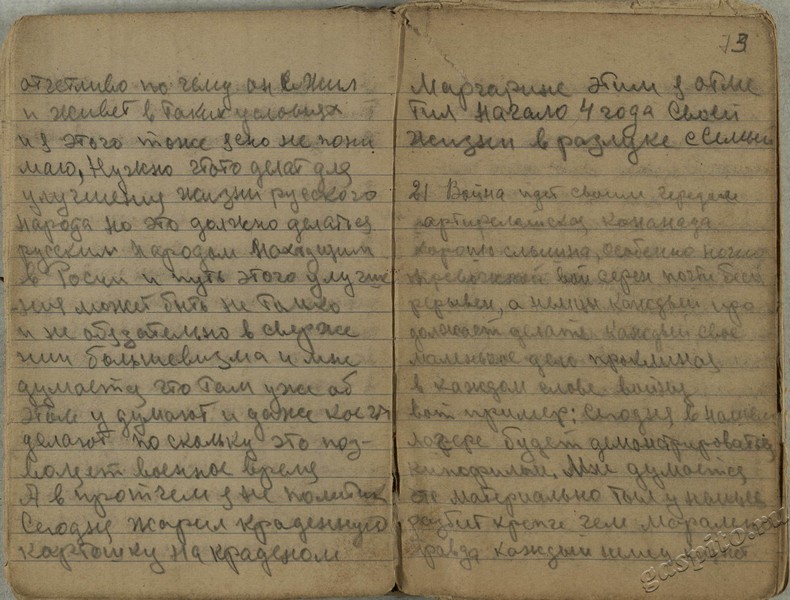 отчетливо по чему он с жил
и живет в таких условиях
и я этого тоже ясно не пони
маю, Нужно чтото делат для
улучшения жизни русского
народа но это должно делатся
русским народом находящим
в Росии и путь этого улучше
ния может быть не только
и не обязательно в сверже
нии большевизма и мне
думается что там уже об
этом и думают и даже кое чт
делают по скольку это поз-
воляет военное время
А в протчем я не политик
Сегодня жарил краденную
картошку на краденом
13
Маргарине этим я отме
тил начало 4 года Своей
жизни в разлуке с Семьей
21 Война идет своим чередом
артирелийская канонада
хорошо слышна, особенно ночью
тревожный вой серен почти беспе
рерывен, а немцы каждый про
должает делать каждый свое
маленькое дело проклиная
в каждом слове войну
вот пример: Сегодня в нашем
лагере будет демонстрироватся
кинофильм. Мне думается
что материально тыл у немцев
разбит крепче чем морально
правда каждый немец
gaspiko.ru